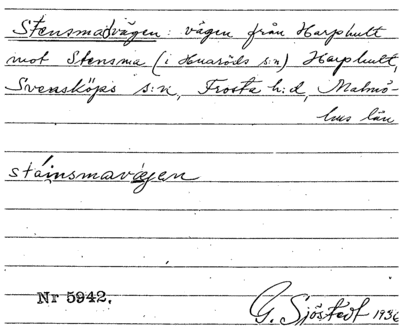 Stensmavägen: vägen från Harphult
mot Stensma (i Huaröds s:n) Harphult,
Svensköps s:n, Frosta h:d, Malmö-
hus län
stáinsmavä́jen
Nr 5942.
G. Sjöstedt 1936